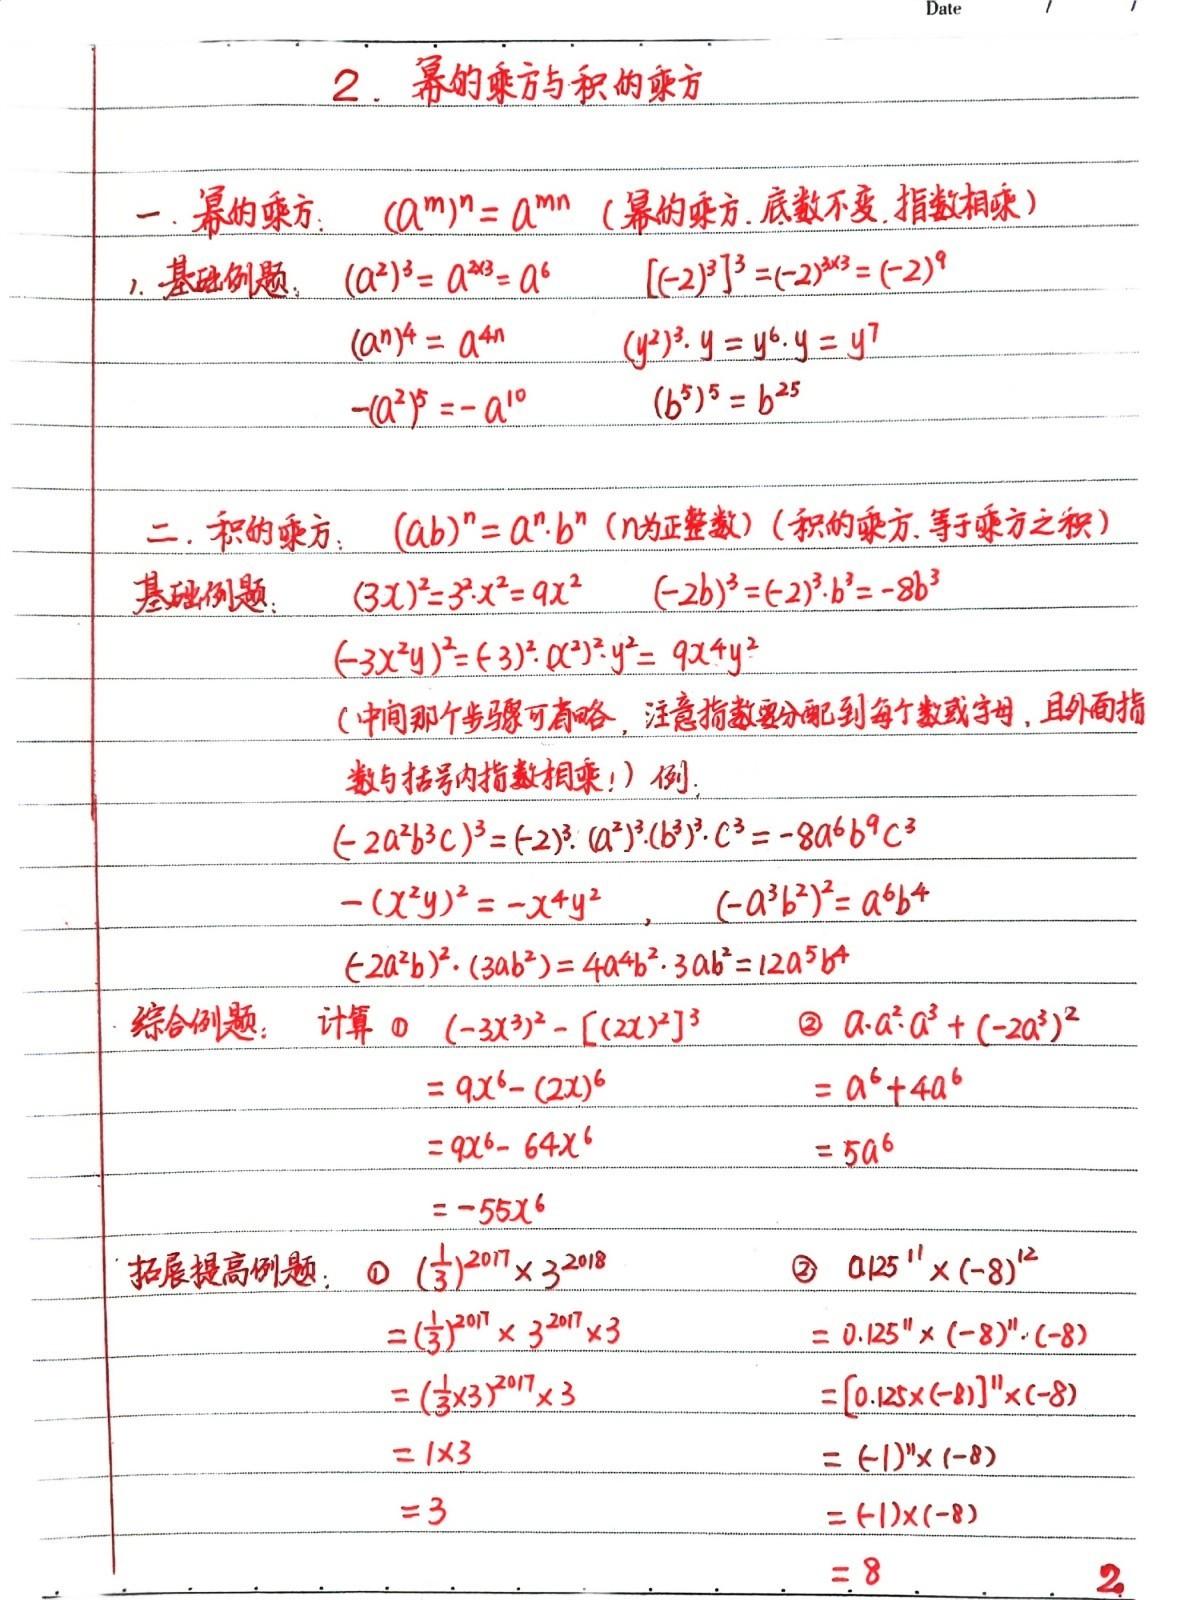 Date / /
2. 幂的乘方与积的乘方
一. 幂的乘方: (a^m)^n = a^mn (幂的乘方.底数不变.指数相乘)
1. 基础例题: (a²)³ = a^2×3 = a⁶ [(-2)³]³ = (-2)^3×3 = (-2)⁹
(aⁿ)⁴ = a^4n (y²)³·y = y⁶·y = y⁷
-(a²)⁵ = -a¹⁰ (b⁵)⁵ = b²⁵
二. 积的乘方: (ab)ⁿ = aⁿ·bⁿ (n为正整数) (积的乘方.等于乘方之积)
基础例题: (3x)² = 3²·x² = 9x² (-2b)³ = (-2)³·b³ = -8b³
(-3x²y)² = (-3)²·(x²)²·y² = 9x⁴y²
(中间那个步骤可省略,注意指数要分配到每个数或字母,且外面指
数与括号内指数相乘!) 例:
(-2a²b³c)³ = (-2)³·(a²)³·(b³)³·c³ = -8a⁶b⁹c³
-(x²y)² = -x⁴y² , (-a³b²)² = a⁶b⁴
(-2a²b)²·(3ab²) = 4a⁴b²·3ab² = 12a⁵b⁴
综合例题: 计算 ① (-3x³)² - [(2x)²]³ ② a·a²·a³ + (-2a³)²
= 9x⁶ - (2x)⁶ = a⁶ + 4a⁶
= 9x⁶ - 64x⁶ = 5a⁶
= -55x⁶
拓展提高例题: ① (1/3)²⁰¹⁷ × 3²⁰¹⁸ ② 0.125¹¹ × (-8)¹²
= (1/3)²⁰¹⁷ × 3²⁰¹⁷ × 3 = 0.125¹¹ × (-8)¹¹·(-8)
= (1/3×3)²⁰¹⁷ × 3 = [0.125×(-8)]¹¹×(-8)
= 1×3 = (-1)¹¹×(-8)
= 3 = (-1)×(-8)
= 8
2.